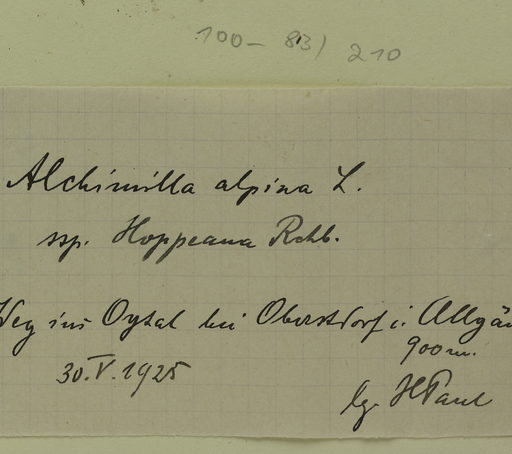 100- 83) 210
Alchimilla alpina L.
ssp. Hoppeana Rchb.
Weg ins Oytal bei Oberstdorf i. Allgäu
900 m.
30.V.1925
lg. H Paul